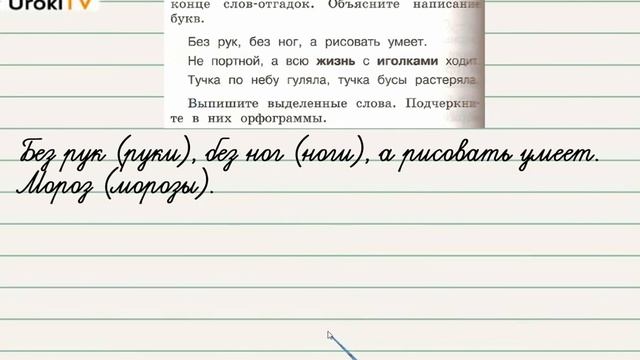 UrokiTV
конце слов-отгадок. Объясните написание
букв.
Без рук, без ног, а рисовать умеет.
Не портной, а всю жизнь с иголками ходит.
Тучка по небу гуляла, тучка бусы растеряла.
Выпишите выделенные слова. Подчеркни-
те в них орфограммы.
Без рук (руки), без ног (ноги), а рисовать умеет.
Мороз (морозы).